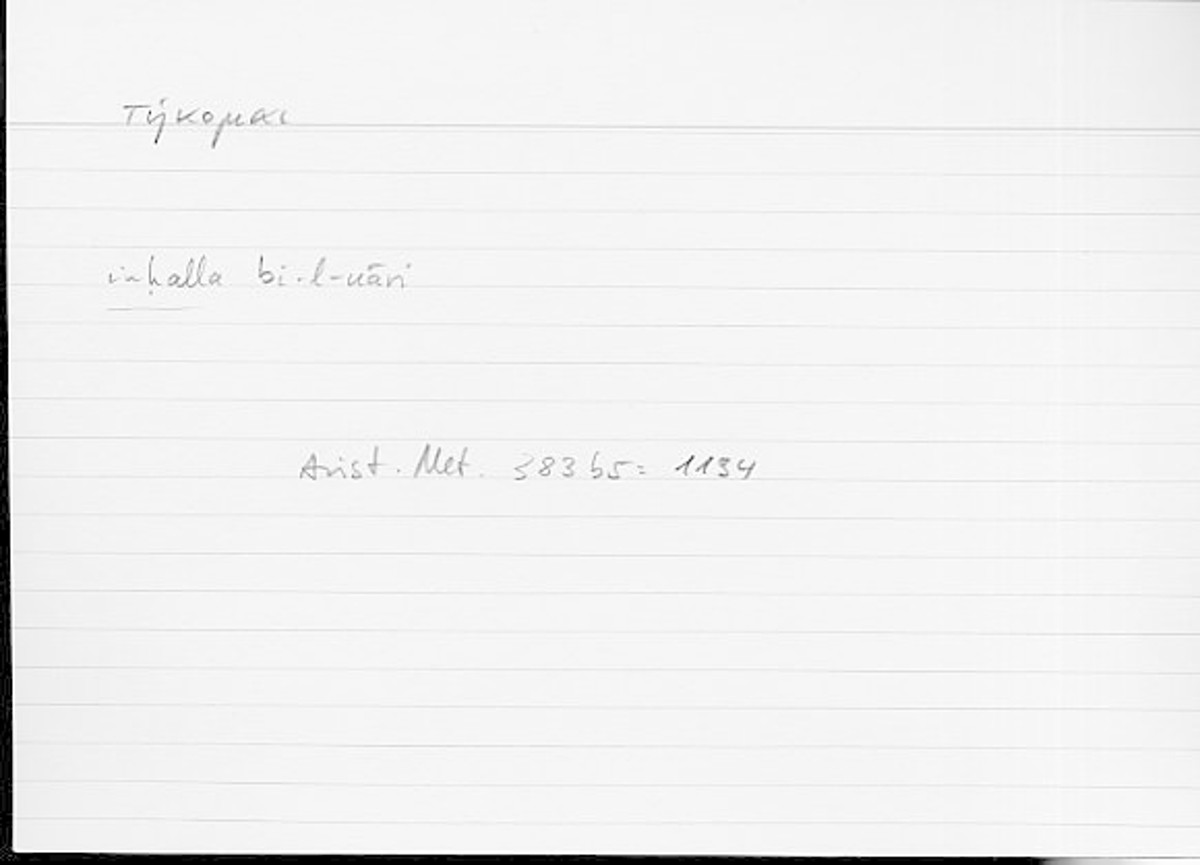 τήκομαι
inḥalla bi-l-nāri
Arist. Met. 383 b5 = 1134